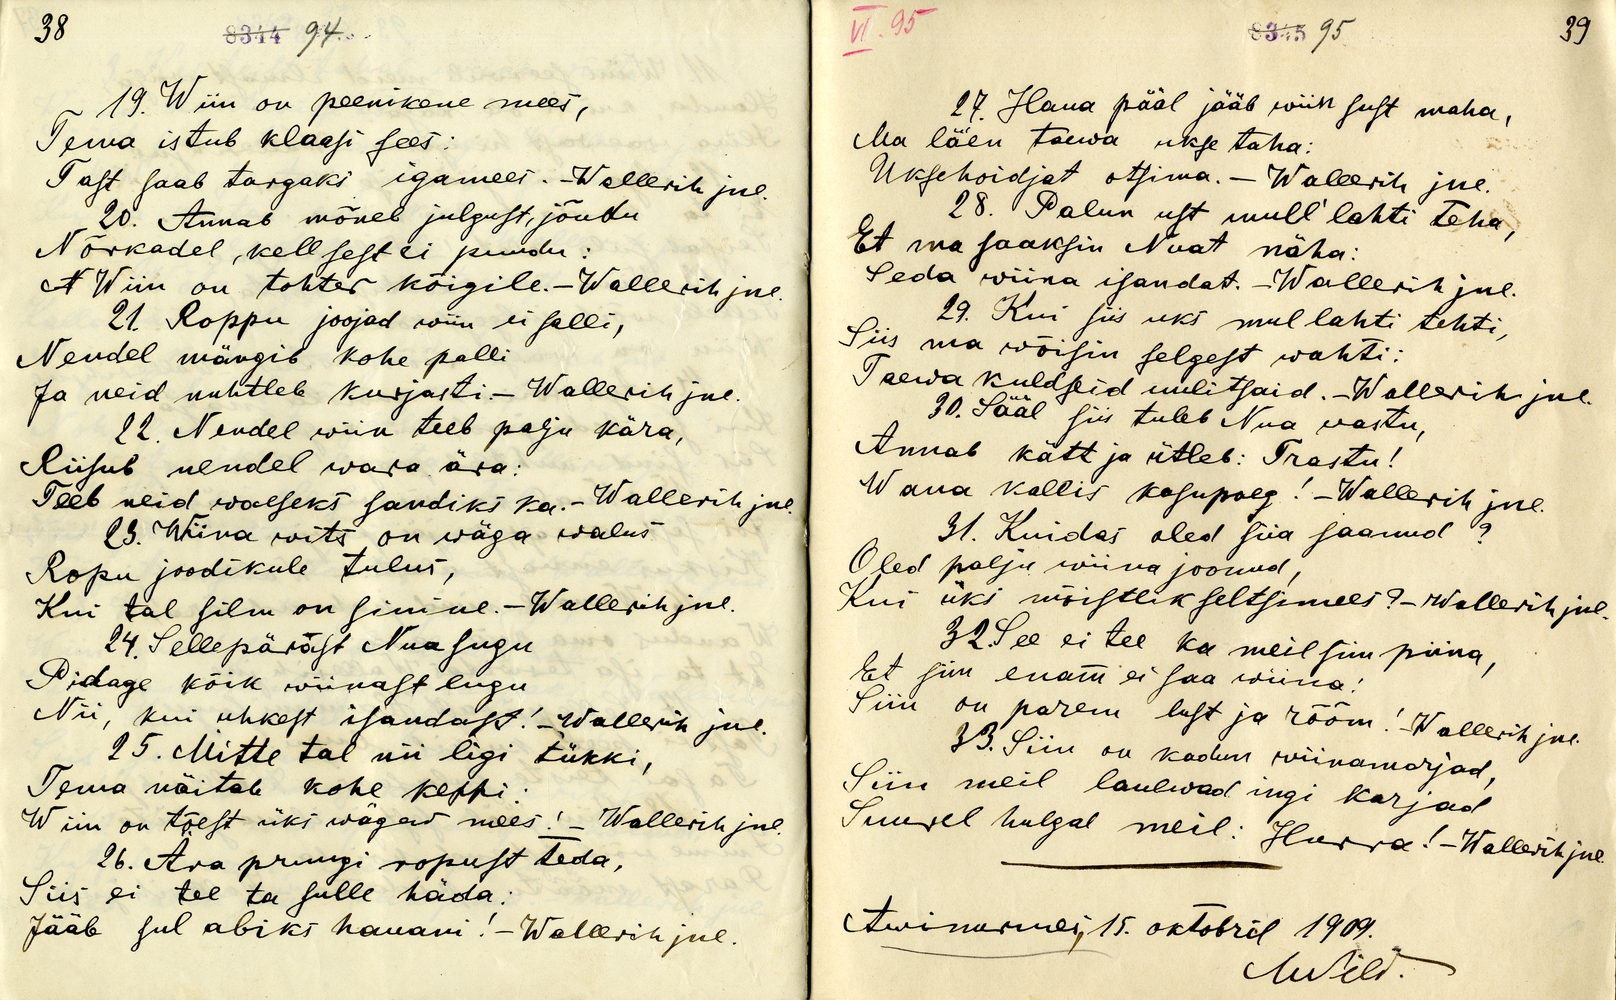 38
8344 94.
19. Wiin on peenikene mees,
Tema istub klaasi sees:
Tast saab targaks igamees. - Wallerih jne.
20. Annab mõnel julgust, jõudu
Nõrkadel, kell sest ei puudu:
Wiin on tohter kõigile. - Wallerih jne.
21. Roppu joojad wiin ei salli,
Nendel mängib kohe palli
Ja neid nuhtleb kurjasti. - Wallerih jne.
22. Nendel wiin teeb palju kära,
Riisub nendel wara ära:
Teeb neid waeseks sandiks ka. - Wallerih jne.
23. Wiina wits on wäga walus
Ropu joodikule tulus,
Kui tal silm on sinine. - Wallerih jne.
24. Sellepäräst Nua sugu
Pidage kõik wiinast lugu
Nii, kui uhkest isandast! - Wallerih jne.
25. Mitte tal nii ligi tükki,
Tema näitab kohe keppi:
Wiin on tõest üks wägew mees! - Wallerih jne.
26. Ära pruugi ropust teda,
Siis ei tee ta sulle häda:
Jääb sul abiks hauani! - Wallerih jne.
VI. 95
8345 95
39
27. Haua pääl jääb wiin sust maha,
Ma läen taewa ukse taha:
Uksehoidjat otsima. - Wallerih jne.
28. Palun ust mull' lahti teha,
Et ma saaksin Nuat näha:
Seda wiina isandat. - Wallerih jne.
29. Kui siis uks mul lahti tehti,
Siis ma wõisin selgest wahti:
Taewa kuldseid uulitsaid. - Wallerih jne.
30. Sääl siis tuleb Nua wastu,
Annab kätt ja ütleb: Trastu!
Wana kallis kasupoeg! - Wallerih jne.
31. Kuidas oled siia saanud?
Oled palju wiina joonud,
Kui üks mõistlik seltsimees? - Wallerih jne.
32. See ei tee ka meil siin piina,
Et siin enam̅ ei saa wiina:
Siin on parem lust ja rõõm! - Wallerih jne.
33. Siin on kadun wiinamarjad,
Siin meil laulwad ingi karjad
Suurel hulgal meil: Hurra! - Wallerih jne.
Awinurmes, 15. oktobril 1909.